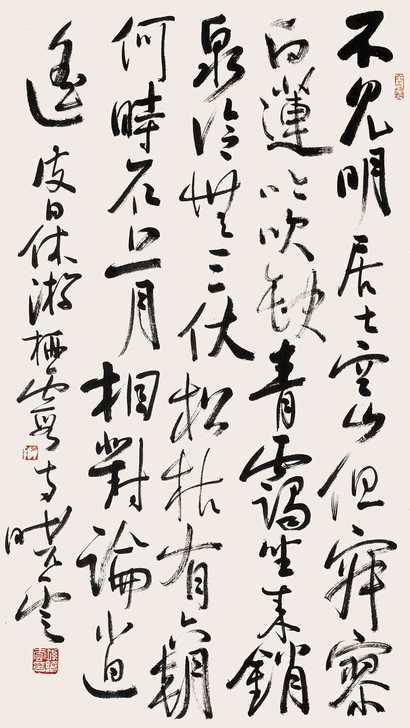 不見明居士空山但寂寥
白蓮吟次缺青靄坐来銷
泉冷無三伏松枯有六朝
何時石上月相對論逍
遥 皮日休游栖霞寺 曉雲